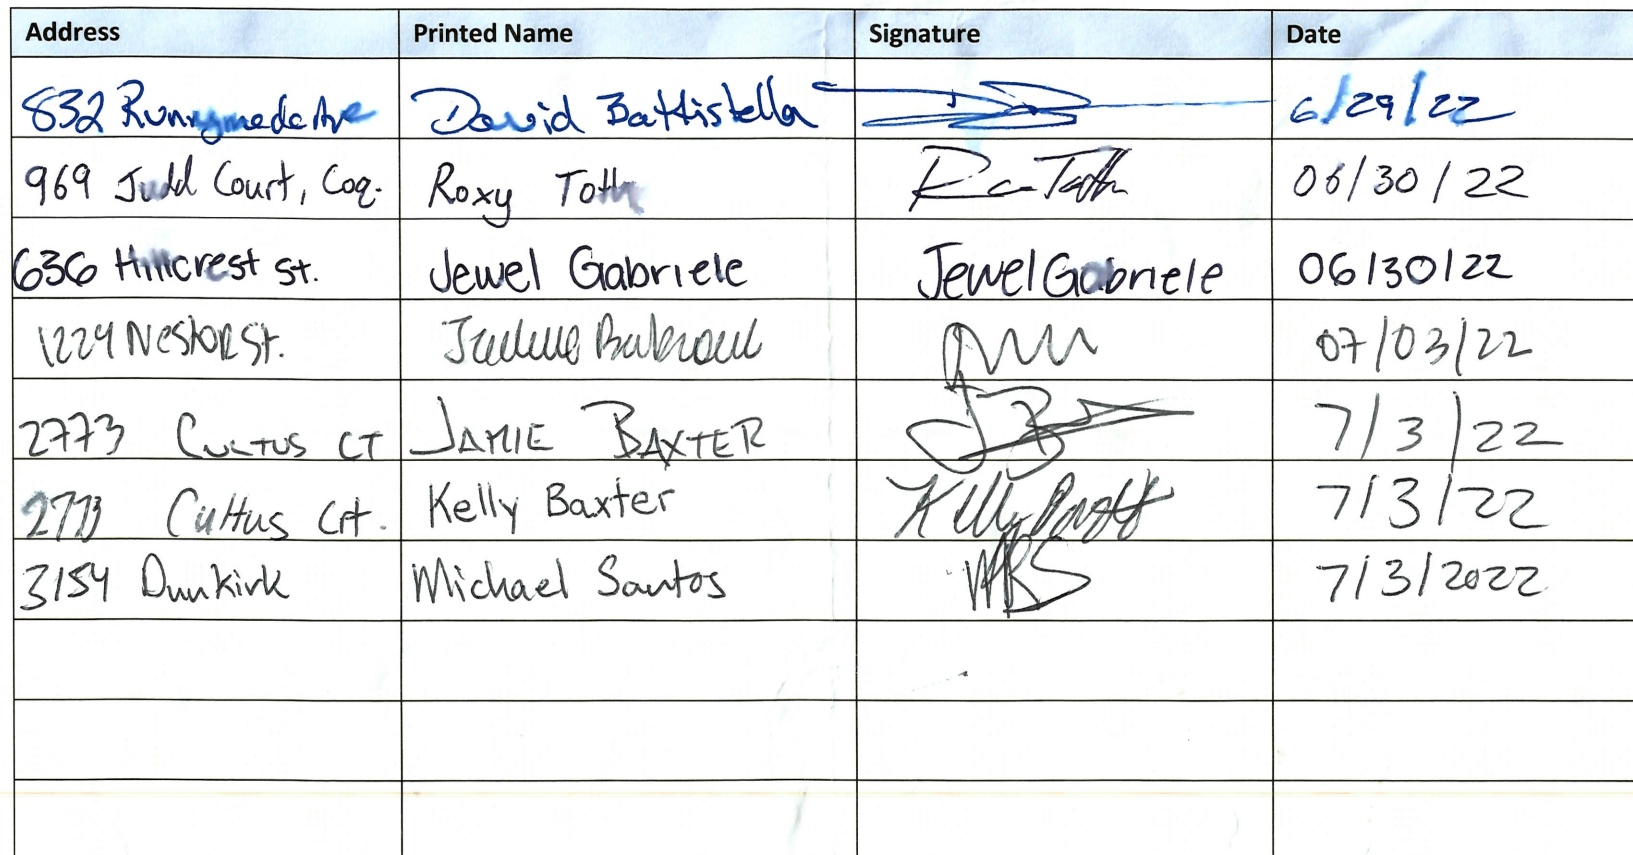 Address Printed Name Signature Date
832 Runnymede Ave David Battistella 6/29/22
969 Judd Court, Coq. Roxy Toth 06/30/22
636 Hillcrest St. Jewel Gabriele Jewel Gabriele 06/30/22
1224 Nestor St. 07/03/22
2773 Cultus CT JAMIE BAXTER 7/3/22
2773 Cultus Crt. Kelly Baxter Kelly 7/3/22
3154 Dunkirk Michael Santos MBS 7/3/2022